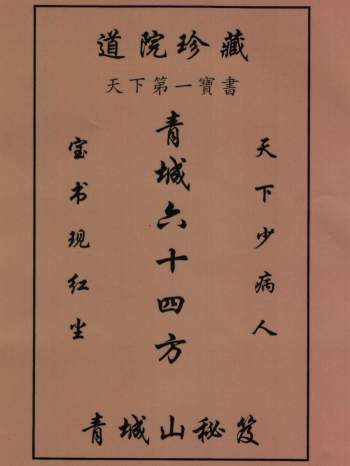 道院珍藏
天下第一寶書
青城六十四方
天下少病人
宝书现红尘
青城山秘笈